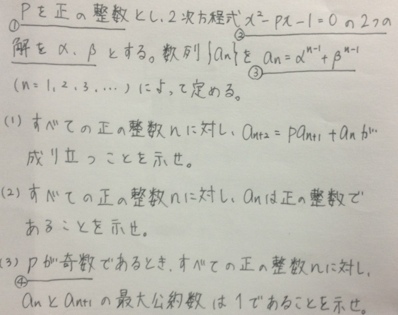 Pを正の整数とし、2次方程式 x²-px-1=0 の2つの
① ②
解を α、β とする。数列{an}を an=α^{n-1}+β^{n-1}
③
(n=1, 2, 3, …) によって定める。
(1) すべての正の整数nに対し、an+2=pan+1+anが
成り立つことを示せ。
(2) すべての正の整数nに対し、anは正の整数で
あることを示せ。
(3) Pが奇数であるとき、すべての正の整数nに対し、
④
anとan+1の最大公約数は1であることを示せ。